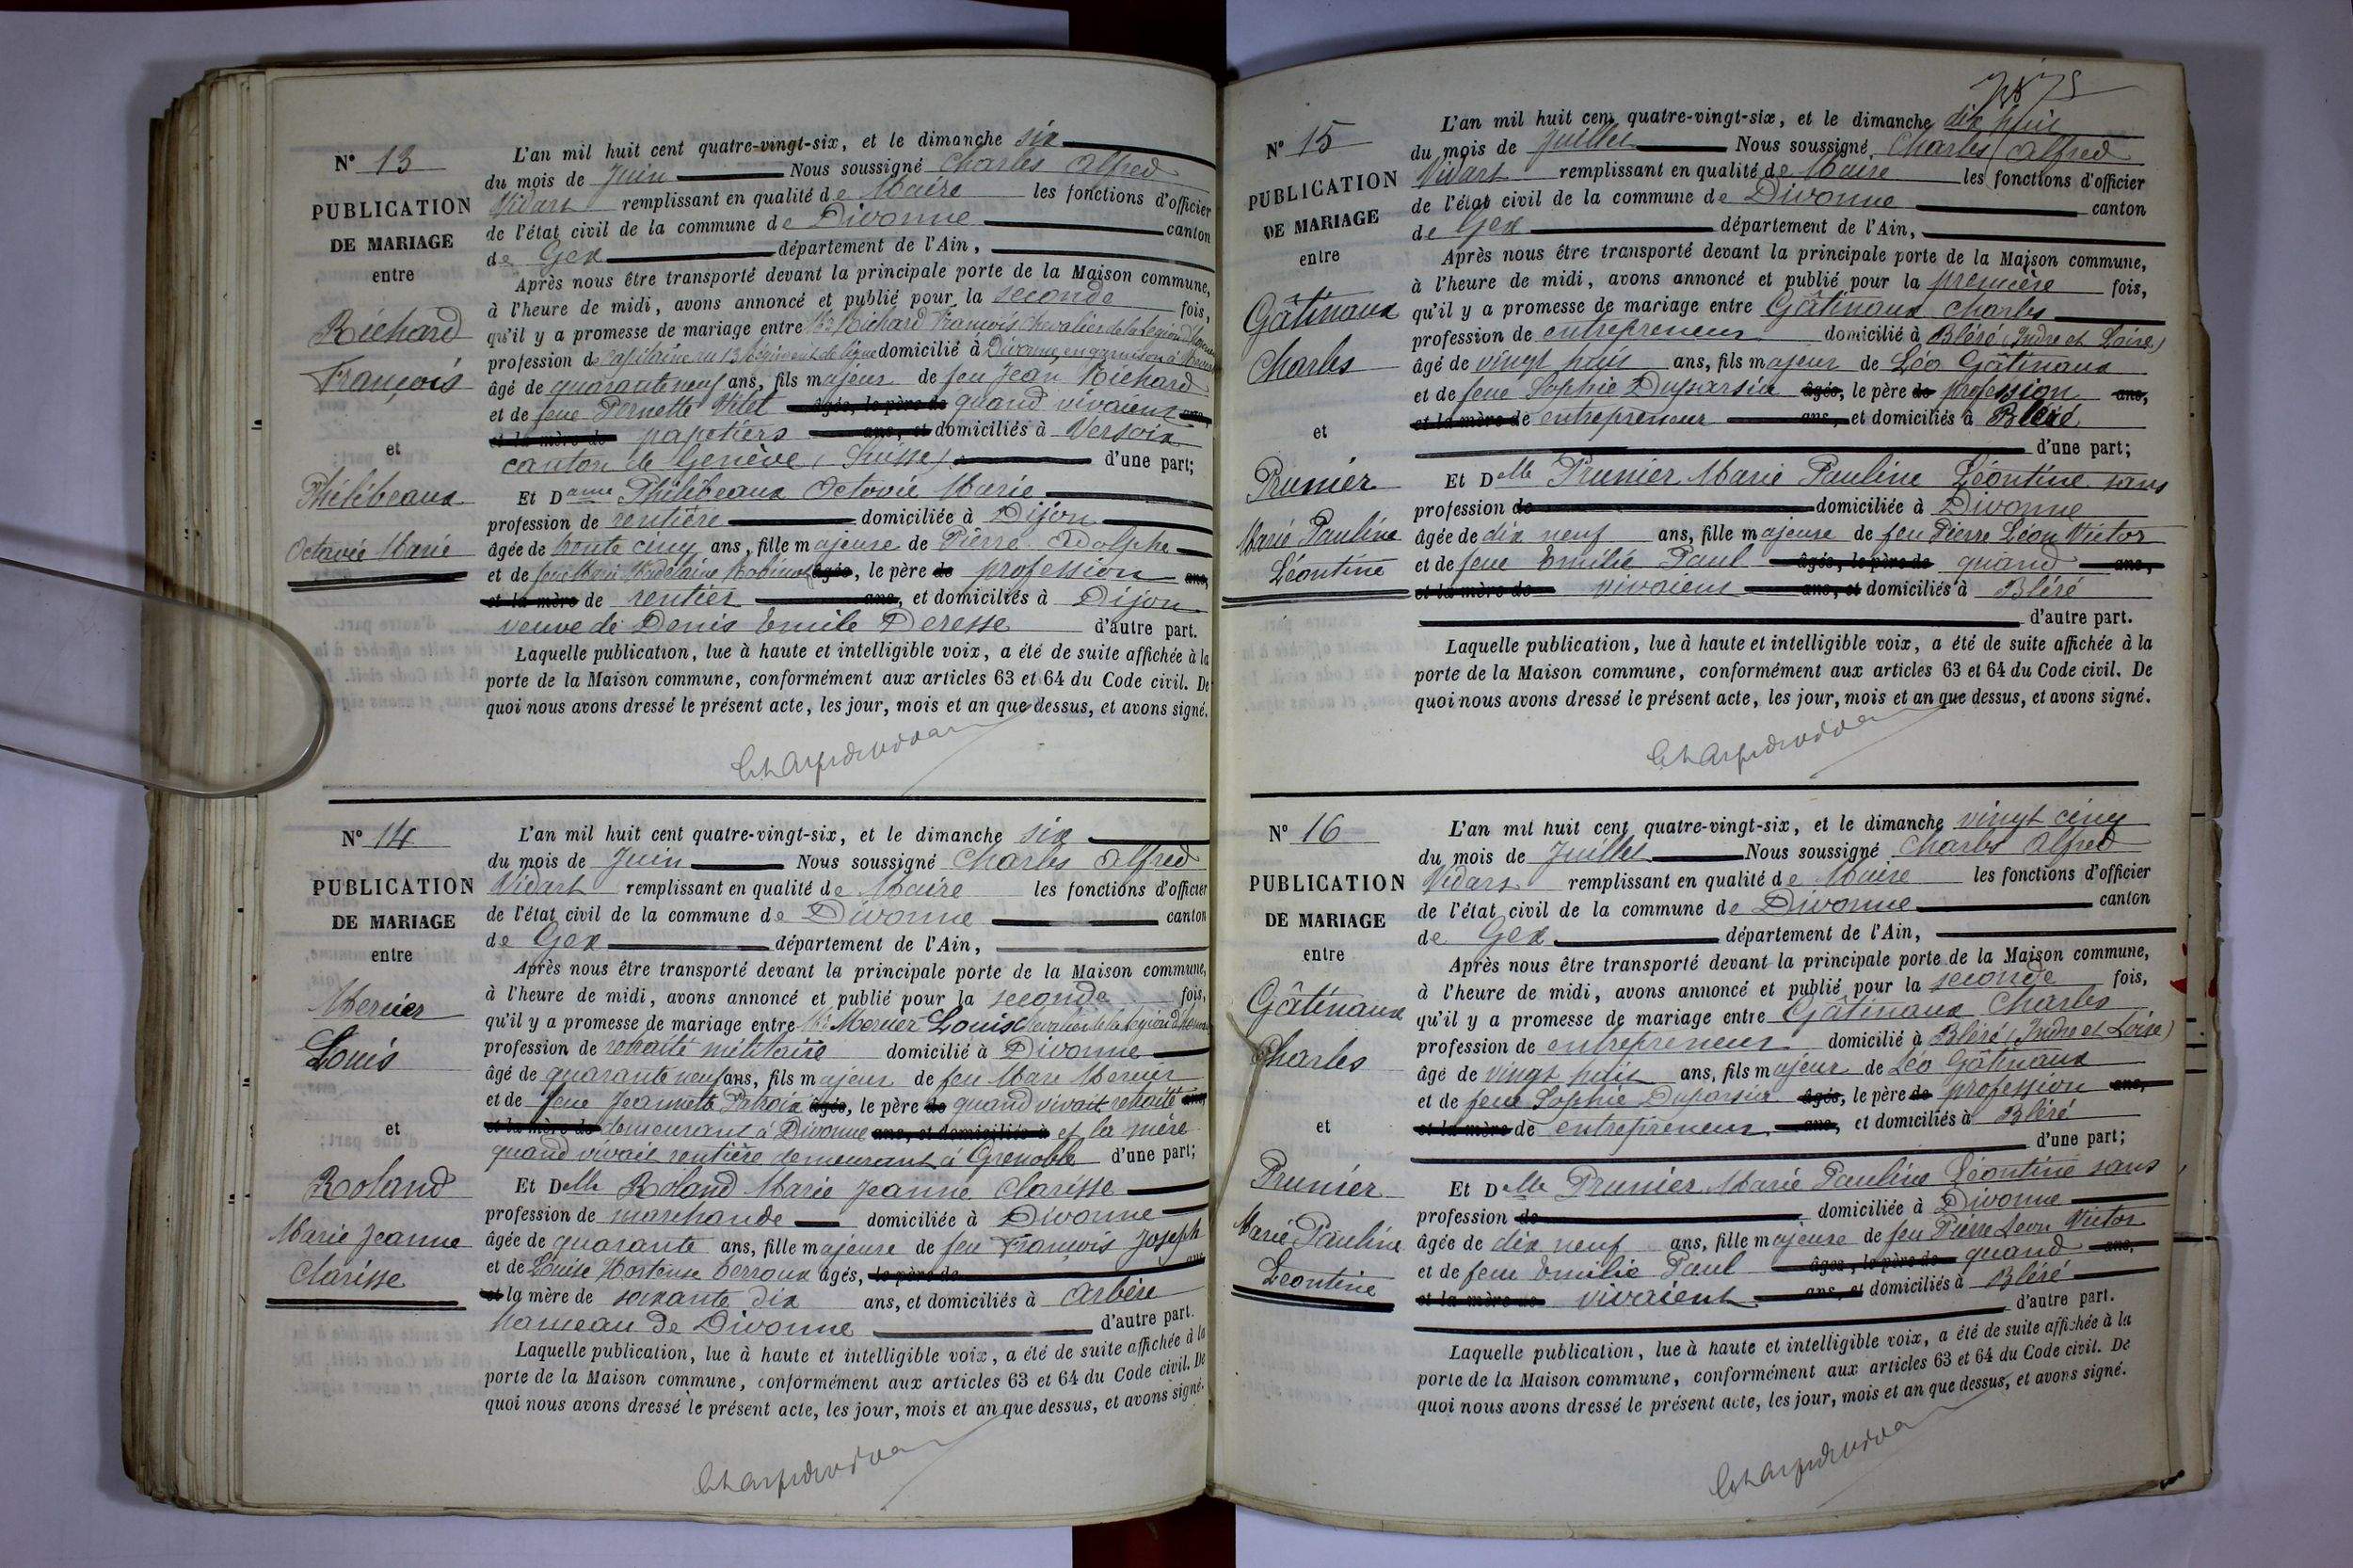 N° 13
PUBLICATION
DE MARIAGE
entre
Richard
François
et
Philibeaux
Octavie Marie
L'an mil huit cent quatre-vingt-six, et le dimanche six
du mois de Juin Nous soussigné Charles Alfred
Vidart remplissant en qualité de Maire les fonctions d'officier
de l'état civil de la commune de Divonne canton
de Gex département de l'Ain,
Après nous être transporté devant la principale porte de la Maison commune,
à l'heure de midi, avons annoncé et publié pour la seconde fois,
qu'il y a promesse de mariage entre Mr Richard François Chevalier de la Légion d'honneur
profession de Capitaine au 13 Régiment de ligne domicilié à Divonne, en garnison à
âgé de quarante neuf ans, fils majeur de feu Jean Richard
et de feue Pernette Vitet âgés, le père de quand vivaient ans,
et la mère de papetiers ans, et domiciliés à Versoix
canton de Genève (Suisse) d'une part;
Et Dame Philibeaux Octavie Marie
profession de rentière domiciliée à Dijon
âgée de trente cinq ans, fille majeure de Pierre Adolphe
et de feue Marie Madelaine âgés, le père de profession ans,
et la mère de rentier ans, et domiciliés à Dijon
veuve de Denis Emile Deresse d'autre part.
Laquelle publication, lue à haute et intelligible voix, a été de suite affichée à la
porte de la Maison commune, conformément aux articles 63 et 64 du Code civil. De
quoi nous avons dressé le présent acte, les jour, mois et an que dessus, et avons signé.
N° 14
PUBLICATION
DE MARIAGE
entre
Mercier
Louis
et
Roland
Marie Jeanne
Clarisse
L'an mil huit cent quatre-vingt-six, et le dimanche six
du mois de Juin Nous soussigné Charles Alfred
Vidart remplissant en qualité de Maire les fonctions d'officier
de l'état civil de la commune de Divonne canton
de Gex département de l'Ain,
Après nous être transporté devant la principale porte de la Maison commune,
à l'heure de midi, avons annoncé et publié pour la seconde fois,
qu'il y a promesse de mariage entre Mr Mercier Louis Chevalier de la Légion d'honneur
profession de retraité militaire domicilié à Divonne
âgé de quarante neuf ans, fils majeur de feu Marc Mercier
et de feue Jeannette âgés, le père de quand vivait retraité ans,
et la mère de demeurant à Divonne ans, et domiciliés à et la mère
quand vivait rentière demeurant à Grenoble d'une part;
Et Delle Roland Marie Jeanne Clarisse
profession de marchande domiciliée à Divonne
âgée de quarante ans, fille majeure de feu François Joseph
et de Louise Hortense Perroux âgés, le père de ans
et la mère de soixante dix ans, et domiciliés à Arbère
hameau de Divonne d'autre part.
Laquelle publication, lue à haute et intelligible voix, a été de suite affichée à la
porte de la Maison commune, conformément aux articles 63 et 64 du Code civil. De
quoi nous avons dressé le présent acte, les jour, mois et an que dessus, et avons signé.
75
N° 15
PUBLICATION
DE MARIAGE
entre
Gâtinaux
Charles
et
Prunier
Marie Pauline
Léontine
L'an mil huit cent quatre-vingt-six, et le dimanche dix huit
du mois de Juillet Nous soussigné Charles Alfred
Vidart remplissant en qualité de Maire les fonctions d'officier
de l'état civil de la commune de Divonne canton
de Gex département de l'Ain,
Après nous être transporté devant la principale porte de la Maison commune,
à l'heure de midi, avons annoncé et publié pour la première fois,
qu'il y a promesse de mariage entre Gâtinaux Charles
profession de entrepreneur domicilié à Bléré (Indre et Loire)
âgé de vingt huit ans, fils majeur de Léo Gâtinaux
et de feue Sophie Duparsin âgés, le père de profession ans,
et la mère de de entrepreneur ans, et domiciliés à Bléré
d'une part;
Et Delle Prunier Marie Pauline Léontine sans
profession de domiciliée à Divonne
âgée de dix neuf ans, fille majeure de feu Pierre Léon Victor
et de feue Emilie Paul âgés, le père de quand ans,
et la mère de vivaient ans, et domiciliés à Bléré
d'autre part.
Laquelle publication, lue à haute et intelligible voix, a été de suite affichée à la
porte de la Maison commune, conformément aux articles 63 et 64 du Code civil. De
quoi nous avons dressé le présent acte, les jour, mois et an que dessus, et avons signé.
N° 16
PUBLICATION
DE MARIAGE
entre
Gâtinaux
Charles
et
Prunier
Marie Pauline
Léontine
L'an mil huit cent quatre-vingt-six, et le dimanche vingt cinq
du mois de Juillet Nous soussigné Charles Alfred
Vidart remplissant en qualité de Maire les fonctions d'officier
de l'état civil de la commune de Divonne canton
de Gex département de l'Ain,
Après nous être transporté devant la principale porte de la Maison commune,
à l'heure de midi, avons annoncé et publié pour la seconde fois,
qu'il y a promesse de mariage entre Gâtinaux Charles
profession de entrepreneur domicilié à Bléré (Indre et Loire)
âgé de vingt huit ans, fils majeur de Léo Gâtinaux
et de feue Sophie Duparsin âgés, le père de profession ans,
et la mère de de entrepreneur ans, et domiciliés à Bléré
d'une part;
Et Delle Prunier Marie Pauline Léontine sans
profession de domiciliée à Divonne
âgée de dix neuf ans, fille majeure de feu Pierre Léon Victor
et de feue Emilie Paul âgés, le père de quand ans,
et la mère de vivaient ans, et domiciliés à Bléré
d'autre part.
Laquelle publication, lue à haute et intelligible voix, a été de suite affichée à la
porte de la Maison commune, conformément aux articles 63 et 64 du Code civil. De
quoi nous avons dressé le présent acte, les jour, mois et an que dessus, et avons signé.